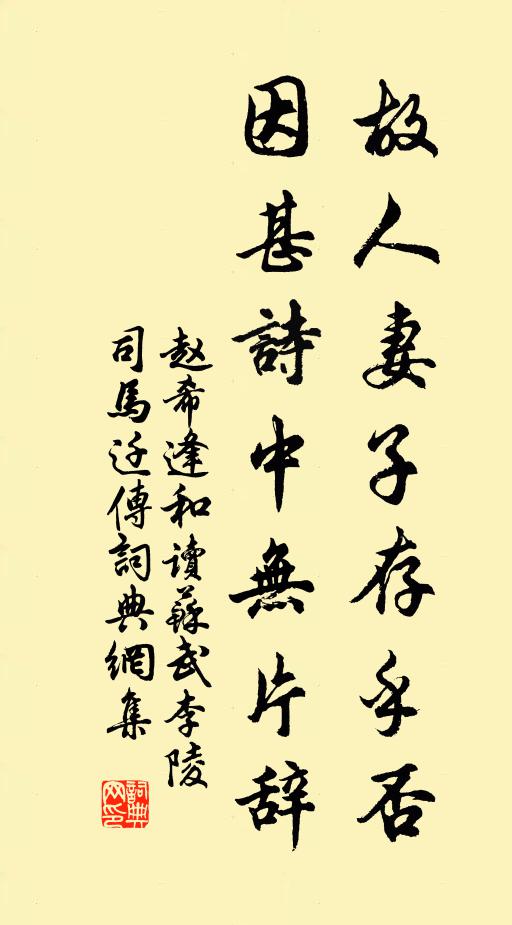 故人妻子存乎否
因甚詩中無片辞
赵希逢和读蘇武李陵
司馬迁傳詞典網集
詞典网印